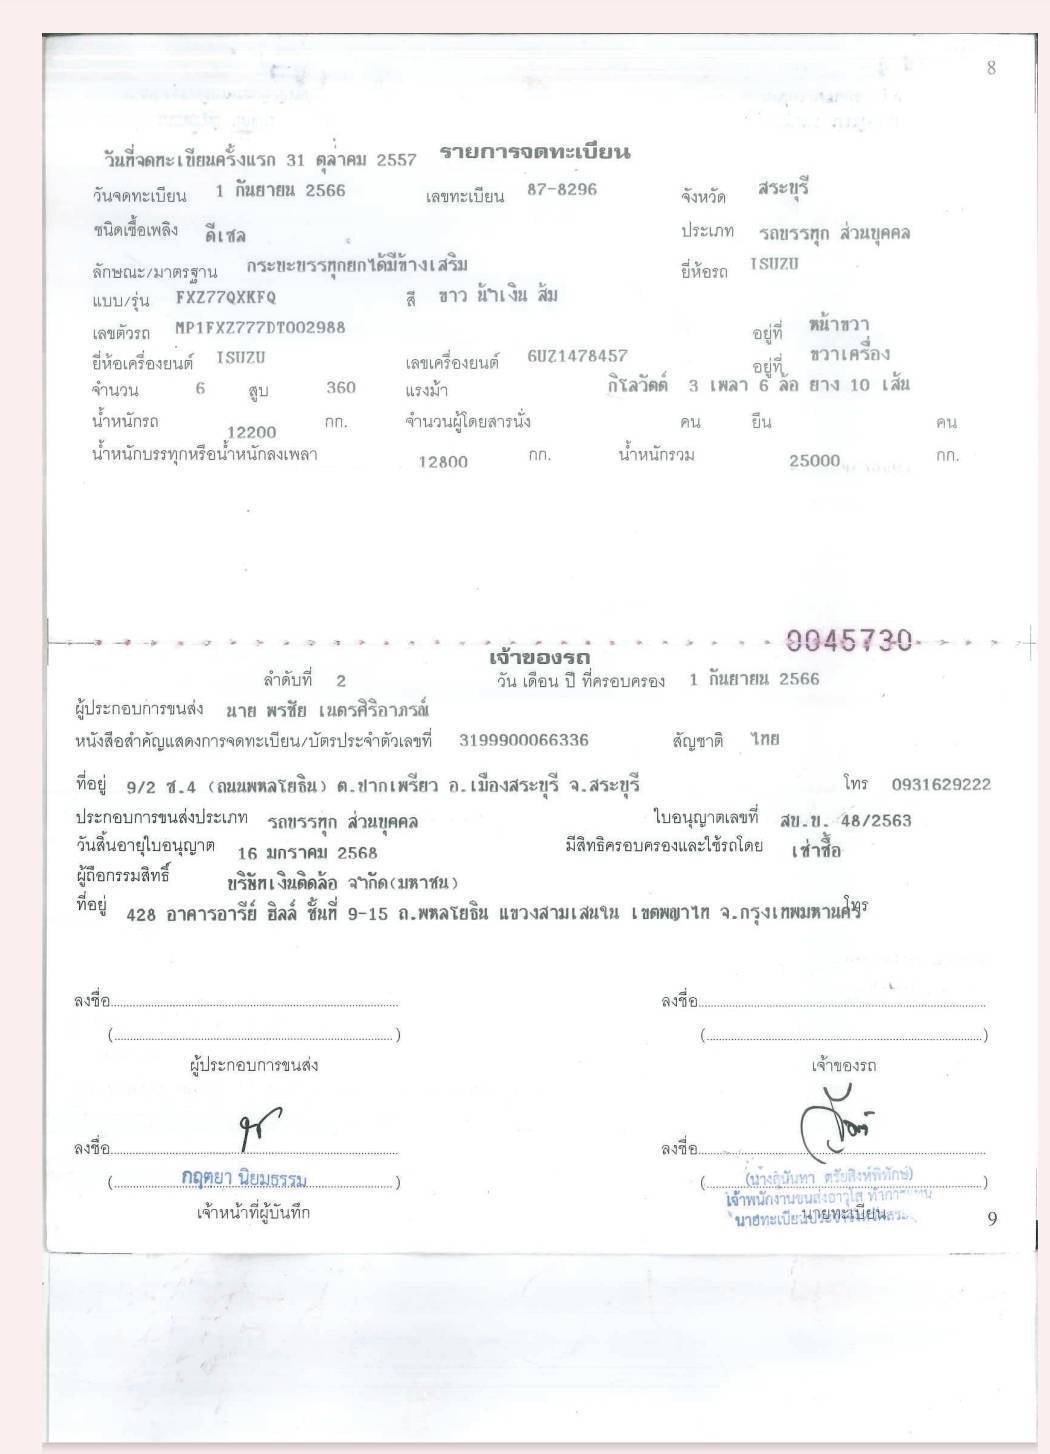 8
วันที่จดทะเบียนครั้งแรก 31 ตุลาคม 2557 รายการจดทะเบียน
วันจดทะเบียน 1 กันยายน 2566 เลขทะเบียน 87-8296 จังหวัด สระบุรี
ชนิดเชื้อเพลิง ดีเซล ประเภท รถบรรทุก ส่วนบุคคล
ลักษณะ/มาตรฐาน กระบะบรรทุกยกได้มีข้างเสริม ยี่ห้อรถ ISUZU
แบบ/รุ่น FXZ77QXKFQ สี ขาว น้ำเงิน ส้ม
เลขตัวรถ MP1FXZ777DT002988 อยู่ที่ หน้าขวา
ยี่ห้อเครื่องยนต์ ISUZU เลขเครื่องยนต์ 6UZ1478457 อยู่ที่ ขวาเครื่อง
จำนวน 6 สูบ 360 แรงม้า กิโลวัตต์ 3 เพลา 6 ล้อ ยาง 10 เส้น
น้ำหนักรถ 12200 กก. จำนวนผู้โดยสารนั่ง คน ยืน คน
น้ำหนักบรรทุกหรือน้ำหนักลงเพลา 12800 กก. น้ำหนักรวม 25000 กก.
0045730
เจ้าของรถ
ลำดับที่ 2 วัน เดือน ปี ที่ครอบครอง 1 กันยายน 2566
ผู้ประกอบการขนส่ง นาย พรชัย เนตรศิริอาภรณ์
หนังสือสำคัญแสดงการจดทะเบียน/บัตรประจำตัวเลขที่ 3199900066336 สัญชาติ ไทย
ที่อยู่ 9/2 ซ.4 (ถนนพหลโยธิน) ต.ปากเพรียว อ.เมืองสระบุรี จ.สระบุรี โทร 0931629222
ประกอบการขนส่งประเภท รถบรรทุก ส่วนบุคคล ใบอนุญาตเลขที่ สบ.บ. 48/2563
วันสิ้นอายุใบอนุญาต 16 มกราคม 2568 มีสิทธิครอบครองและใช้รถโดย เช่าซื้อ
ผู้ถือกรรมสิทธิ์ บริษัทเงินติดล้อ จำกัด(มหาชน)
ที่อยู่ 428 อาคารอารีย์ ฮิลล์ ชั้นที่ 9-15 ถ.พหลโยธิน แขวงสามเสนใน เขตพญาไท จ.กรุงเทพมหานคร โทร
ลงชื่อ ลงชื่อ
( ) ( )
ผู้ประกอบการขนส่ง เจ้าของรถ
ลงชื่อ ลงชื่อ
( กฤตยา นิยมธรรม ) ( )
เจ้าพนักงานขนส่งอาวุโส
เจ้าหน้าที่ผู้บันทึก นายทะเบียน
9